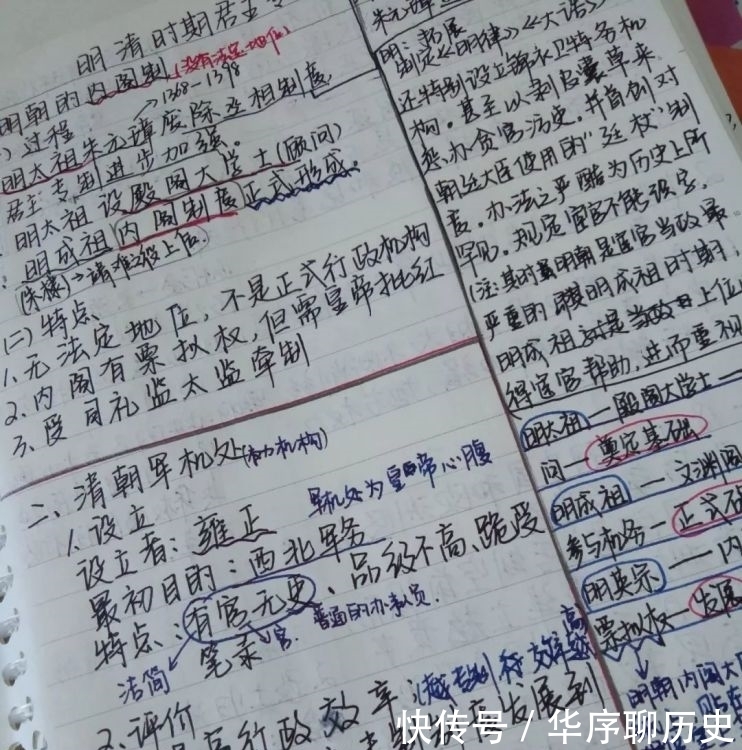 明清时期君主专
明朝的内阁制(没有法定地位)
过程
1368-1398
明太祖朱元璋废除丞相制度
君主专制进一步加强。
明太祖设殿阁大学士(顾问)
明成祖内阁制度正式形成。
(朱棣)→靖难之役上后.
(二)特点
1.无法定地位,不是正式行政机构
2.内阁有票拟权,但需皇帝批红
3.受司礼监太监牵制
二、清朝军机处
1.设立
军机处为皇帝心腹
设立者:雍正
最初目的:西北军务
特点:有官无吏、品级不高、跪受
笔录
官.普通的办事员.
洁简
2.评价
行政效率
发展到
制定《明律》《大诰》
还特别设立锦衣卫特务机
构。甚至以剥皮囊草来
惩办贪官污吏。并首创对
朝廷大臣使用的"廷杖"制
度。办法之严酷为历史上所
罕见。规定宦官不能识字,
(注:其时明朝是宦官当政最
严重的 明成祖时期,
明成祖就是 上位
得宦官帮助,进而重视
明太祖—殿阁大学士—
问—奠定基础
明成祖—文渊阁
参与机务—正式
明英宗—内
票拟权—发展
明朝内阁大
快传号/华序聊历史